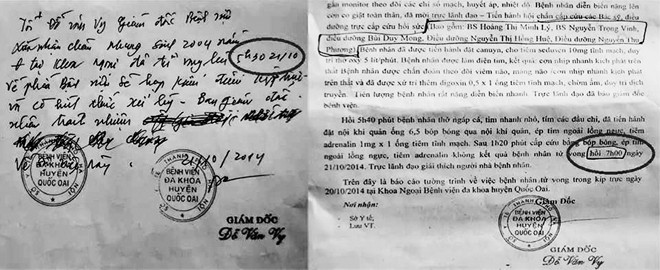 Tôi Đỗ Văn Vy Giám đốc Bệnh viện
xác nhận cháu Nhung sinh 2004 nằm
khoa Ngoại đã tử vong lúc 5h30 21/10
Về phía Bệnh viện Sẽ họp kiểm điểm
và có hình thức xử lý - Ban Giám đốc
nhận trách nhiệm
21/10/2014
BỆNH VIỆN
ĐA KHOA
HUYỆN
QUỐC OAI
GIÁM ĐỐC
Đỗ Văn Vy
gian monitor theo dõi các chỉ số mạch, huyết áp, nhiệt độ. Bệnh nhân diễn biến nặng lên
còn co giật toàn thân, đã mời trực lãnh đạo – Tiến hành hội chẩn cấp cứu các Bác sỹ, điều
dưỡng trực cấp cứu hồi sức. Bao gồm: BS Hoàng Thị Minh Lý, BS Nguyễn Trọng Vinh,
điều dưỡng Bùi Duy Mong, Điều dưỡng Nguyễn Thị Hồng Huê, Điều dưỡng Nguyễn Thu
Phương. Bệnh nhân đã được tiến hành đặt canuya, cho tiêm seduxen 10mg tĩnh mạch, duy
trì thở oxy 5 lít/phút. Bệnh nhân được làm điện tim, kết quả: cơn nhịp nhanh kịch phát trên
thất Bệnh nhân được chẩn đoán theo dõi viêm não, màng não /cơn nhịp nhanh kịch phát
trên thất và đã được xử trí thêm digoxin 0,5 x 1 ống tiêm tĩnh mạch, chườm ấm, duy trì dịch
truyền. Tiên lượng bệnh nhân rất nặng diễn biến nhanh. Trực lãnh đạo đã báo giám đốc
bệnh viện.
Hồi 5h40 phút bệnh nhân thở ngáp cá, tim nhanh nhỏ, tím các đầu chi, đã tiến hành
đặt nội khí quản ống 6,5 bóp bóng qua nội khí quản, ép tim ngoài lồng ngực, tiêm
adrenalin 1mg x 1 ống tiêm tĩnh mạch. Sau 1h20 phút cấp cứu bằng bóp bóng, ép tim
ngoài lồng ngực, tiêm adrenalin không kết quả bệnh nhân tử vong hồi 7h00 ngày
21/10/2014. Trực lãnh đạo giải thích người nhà bệnh nhân.
Trên đây là báo cáo tường trình về việc bệnh nhân tử vong trong kíp trực ngày
20/10/2014 tại Khoa Ngoại Bệnh viện đa khoa huyện Quốc Oai.
Nơi nhận:
Giám Đốc
- Sở Y tế;
- Lưu VT.
BỆNH VIỆN
ĐA KHOA
HUYỆN
QUỐC OAI
GIÁM ĐỐC
Đỗ Văn Vy